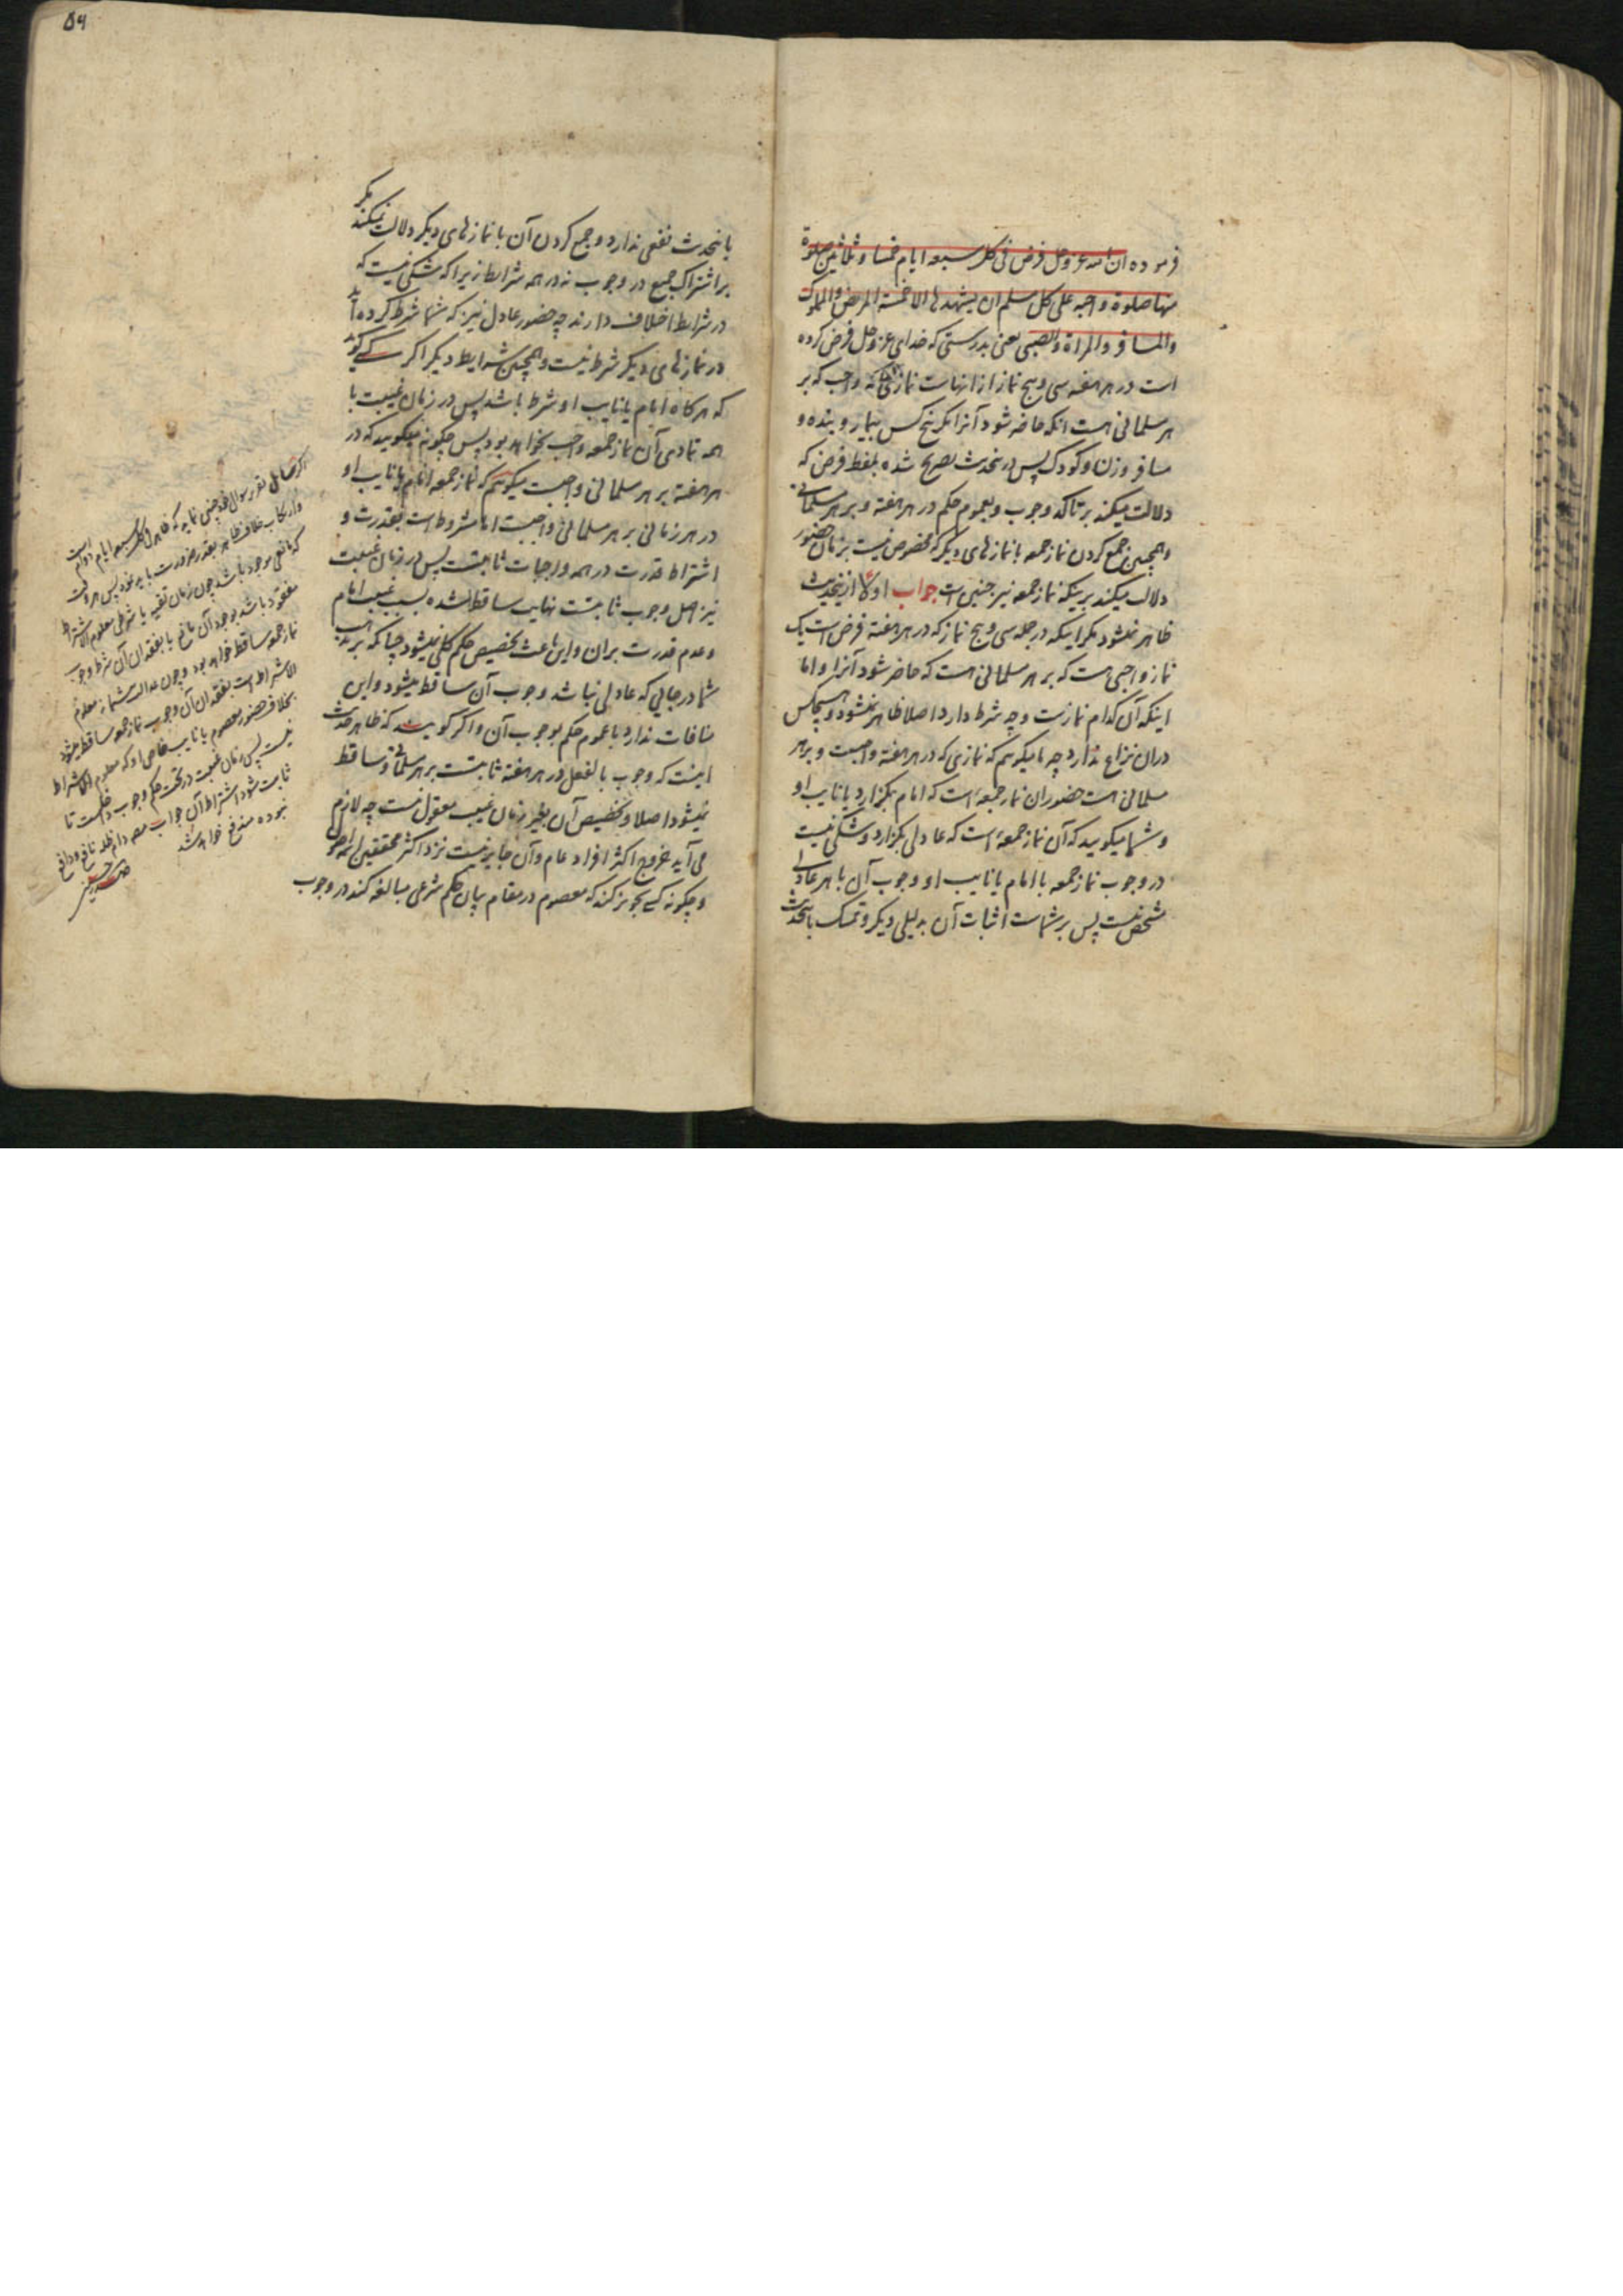 فرموده ان الله عز وجل فرض فی کل سبعه ایام خمسا و ثلثین صلوة
منها صلوة واجبه علی کل مسلم ان یشهدها الا خمسة المریض والمملوک
والمسافر والمراة والصبی یعنی بدرستی که خدای عز وجل فرض کرده
است در هر هفته سی و پنج نماز از انهاست نمازی که واجب که بر
هر مسلمانی هست انکه حاضر شود آنرا مکر پنج کس بیمار و بنده و
مسافر و زن و کودک پس درینحدیث تصریح شده بلفظ فرض که
دلالت میکند بر تاکد وجوب و بعموم حکم در هر هفته و بر هر مسلمانی
و همچنین جمع کردن نماز جمعه با نمازهای دیکر که مخصوص نیست بزمان حضور
دلالت میکند برینکه نماز جمعه نیز چنین است جواب اولا ازینحدیث
ظاهر نمیشود مکر اینکه در جمله سی و پنج نماز که در هر هفته فرض است یک
نماز واجبی هست که بر هر مسلمانی هست که حاضر شود آنرا و اما
اینکه آن کدام نمازست و چه شرط دارد اصلا ظاهر نمیشود و هیچکس
دران نزاع ندارد چه ما میکوییم که نمازی که در هر هفته واجبست و بر هر
مسلمانی هست حضور ان نماز جمعهٔ است که امام بکزارد یا نایب او
و شما میکویید که آن نماز جمعهٔ است که عادلی بکزارد و شکی نیست
در وجوب نماز جمعه با امام یا نایب او و وجوب آن با هر عادلی
مشخص نیست پس بر شماست اثبات آن بدلیلی دیکر و تمسک باینحدیث
۵۶
باینحدیث نفعی ندارد و جمع کردن آن با نمازهای دیکر دلالت نمیکند مکر
بر اشتراک جمیع در وجوب نه در همه شرایط زیرا که شکی نیست که
در شرایط اختلاف دارند چه حضور عادل نیز که شما شرط کرده اید
در نمازهای دیکر شرط نیست و همچنین شرایط دیکر اکر کسی کوید
که هرکاه امام یا نایب او شرط باشد پس در زمان غیبت با
همه تمادی آن نماز جمعه واجب نخواهد بود پس چکونه میکویید که در
هر هفته بر هر مسلمانی واجبست میکوییم که نماز جمعه امام یا نایب او
در هر زمانی بر هر مسلمانی واجبست اما مشروط است بقدرت و
اشتراط قدرت در همه واجبات ثابتست پس در زمان غیبت
نیز اصل وجوب ثابتست نهایت ساقط شده بسبب غیبت امام
و عدم قدرت بران و این باعث تخصیص حکم کلی نمیشود چنانکه بر مذهب
شما در جایی که عادلی نباشد وجوب آن ساقط میشود و این
منافات ندارد با عموم حکم بوجوب آن و اکر کویید که ظاهر حدیث
اینست که وجوب بالفعل در هر هفته ثابتست بر هر مسلمانی و ساقط
نمیشود اصلا و تخصیص آن بغیر زمان غیبت معقول نیست چه لازم
می آید خروج اکثر افراد عام و آن جایز نیست نزد اکثر محققین
و چکونه کسی تجویز کند که معصوم در مقام بیان حکم شرعی مبالغه کند در وجوب
اکر سایل تقریر سوال خود چنین نماید که ظاهر کل سبعه ایام دوام است
وارتکاب خلاف ظاهر بقدر ضرورت باید نمود پس هر وقت
که مانعی موجود باشد چون زمان تقیه یا شرطی معلوم الاشتراط
مفقود باشد بوجود آن مانع یا بفقدان آن شرط وجوب
نماز جمعه ساقط خواهد بود و چون عدالت معلوم
الاشتراط است بفقدان آن وجوب نماز جمعه ساقط میشود
بخلاف حضور معصوم یا نایب خاص او که معلوم الاشتراط
نیست پس زمان غیبت در تحت حکم وجوب داخلست تا
ثابت شود اشتراط آن جواب دام ظله نافع
نبوده مندفع خواهد شد